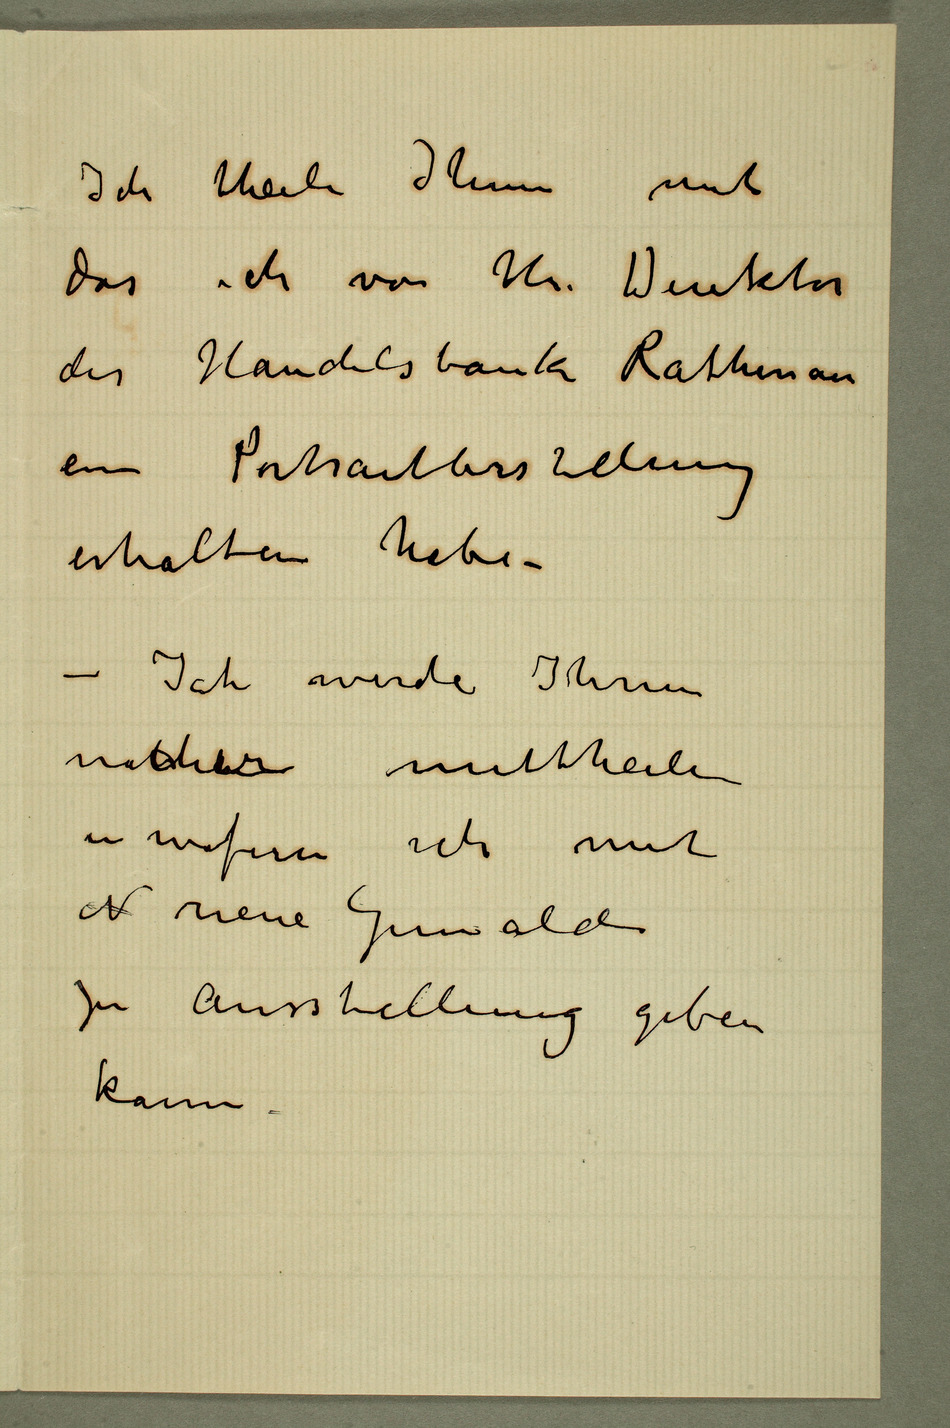 Ich theile Ihnen mit
das ich von Hr. Direktor
der Handelsbank Rathenau
ein Portraitbestellung
erhalten habe –
– Ich werde Ihnen
näher mittheilen
in wofern ich mit
neue Gemälde
zu Ausstellung geben
kann –